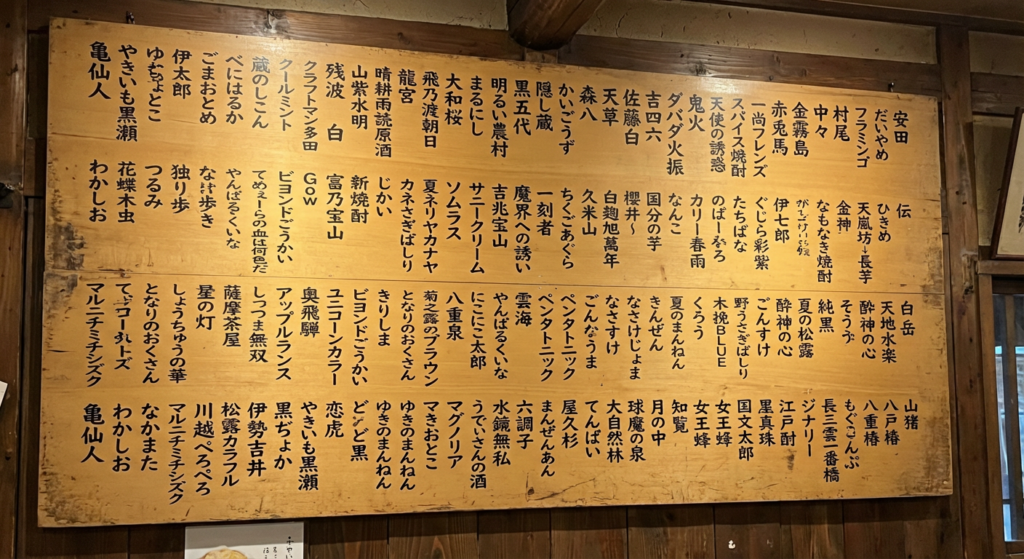 安田
だいやめ
フラミンゴ
村尾
中々
金霧島
赤兎馬
一尚フレンズ
スパイス焼酎
天使の誘惑
鬼火
ダバダ火振
吉四六
佐藤白
天草
森八
かいごうず
隠し蔵
黒五代
明るい農村
まるにし
大和桜
飛乃渡朝日
龍宮
晴耕雨読原酒
山紫水明
残波 白
クラフトマン多田
クールミント
蔵のしこん
べにはるか
ごまおとめ
伊太郎
ゆちょとこ
やきいも黒瀬
亀仙人
伝
ひきめ
天嵐坊・長芋
金神
なもなき焼酎
伊七郎
ぐじら彩紫
たちばな
のぱーろ
カリー春雨
なんこ
国分の芋
櫻井〜
白麹旭萬年
久米山
ちくごあぐら
一刻者
魔界への誘い
吉兆宝山
サニークリーム
ソムラス
夏ネリヤカナヤ
カネさぎばしり
じかい
新焼酎
富乃宝山
Gow
ビヨンドごうかい
てめぇーらの血は何色だ
やんばるくいな
なほ歩き
独り歩
つるみ
花蝶木虫
わかしお
白岳
天地水楽
酔神の心
そうゔ
純黒
夏の松露
酔神の心
ごんすけ
野うさぎばしり
木挽BLUE
くろう
夏のまんねん
きんぜん
なさけじょま
なさすけ
ごんなうま
ペンタトニック
ペンタトニック
雲海
やんばるくいな
にこにこ太郎
八重泉
菊之露のブラウン
となりのおくさん
きりしま
ビヨンドごうかい
ユニコーンカラー
奥飛騨
アップルランス
しつつま無双
薩摩茶屋
星の灯
しょうちゅうの華
となりのおくさん
マルニチミチシズク
山猪
八戸椿
八重椿
もぐらんぷ
長三雲一番橋
ジナリー
江戸酎
里真珠
国文太郎
女王蜂
女王蜂
知覧
月の中
球魔の泉
大自然林
てんぱい
屋久杉
まんぜんあん
六調子
水鏡無私
うでぃさんの酒
マグノリア
マきおとこ
ゆきのまんねん
ゆきのまんねん
どんど黒
恋虎
やきいも黒瀬
黒ぢょか
伊勢吉井
松露カラフル
川越ぺろぺろ
マルニチミチシズク
なかまた
わかしお
亀仙人